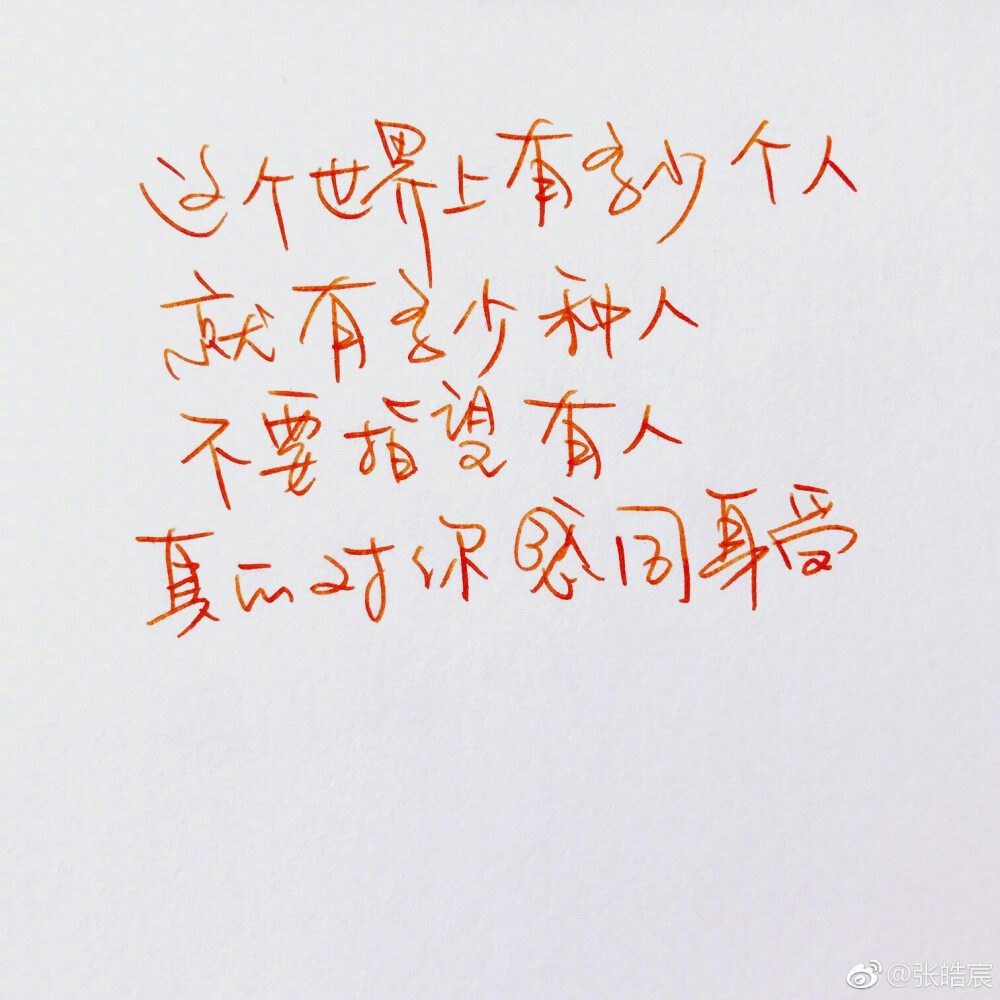 这个世界上有多少个人
就有多少种人
不要指望有人
真正对你感同身受
@张皓宸